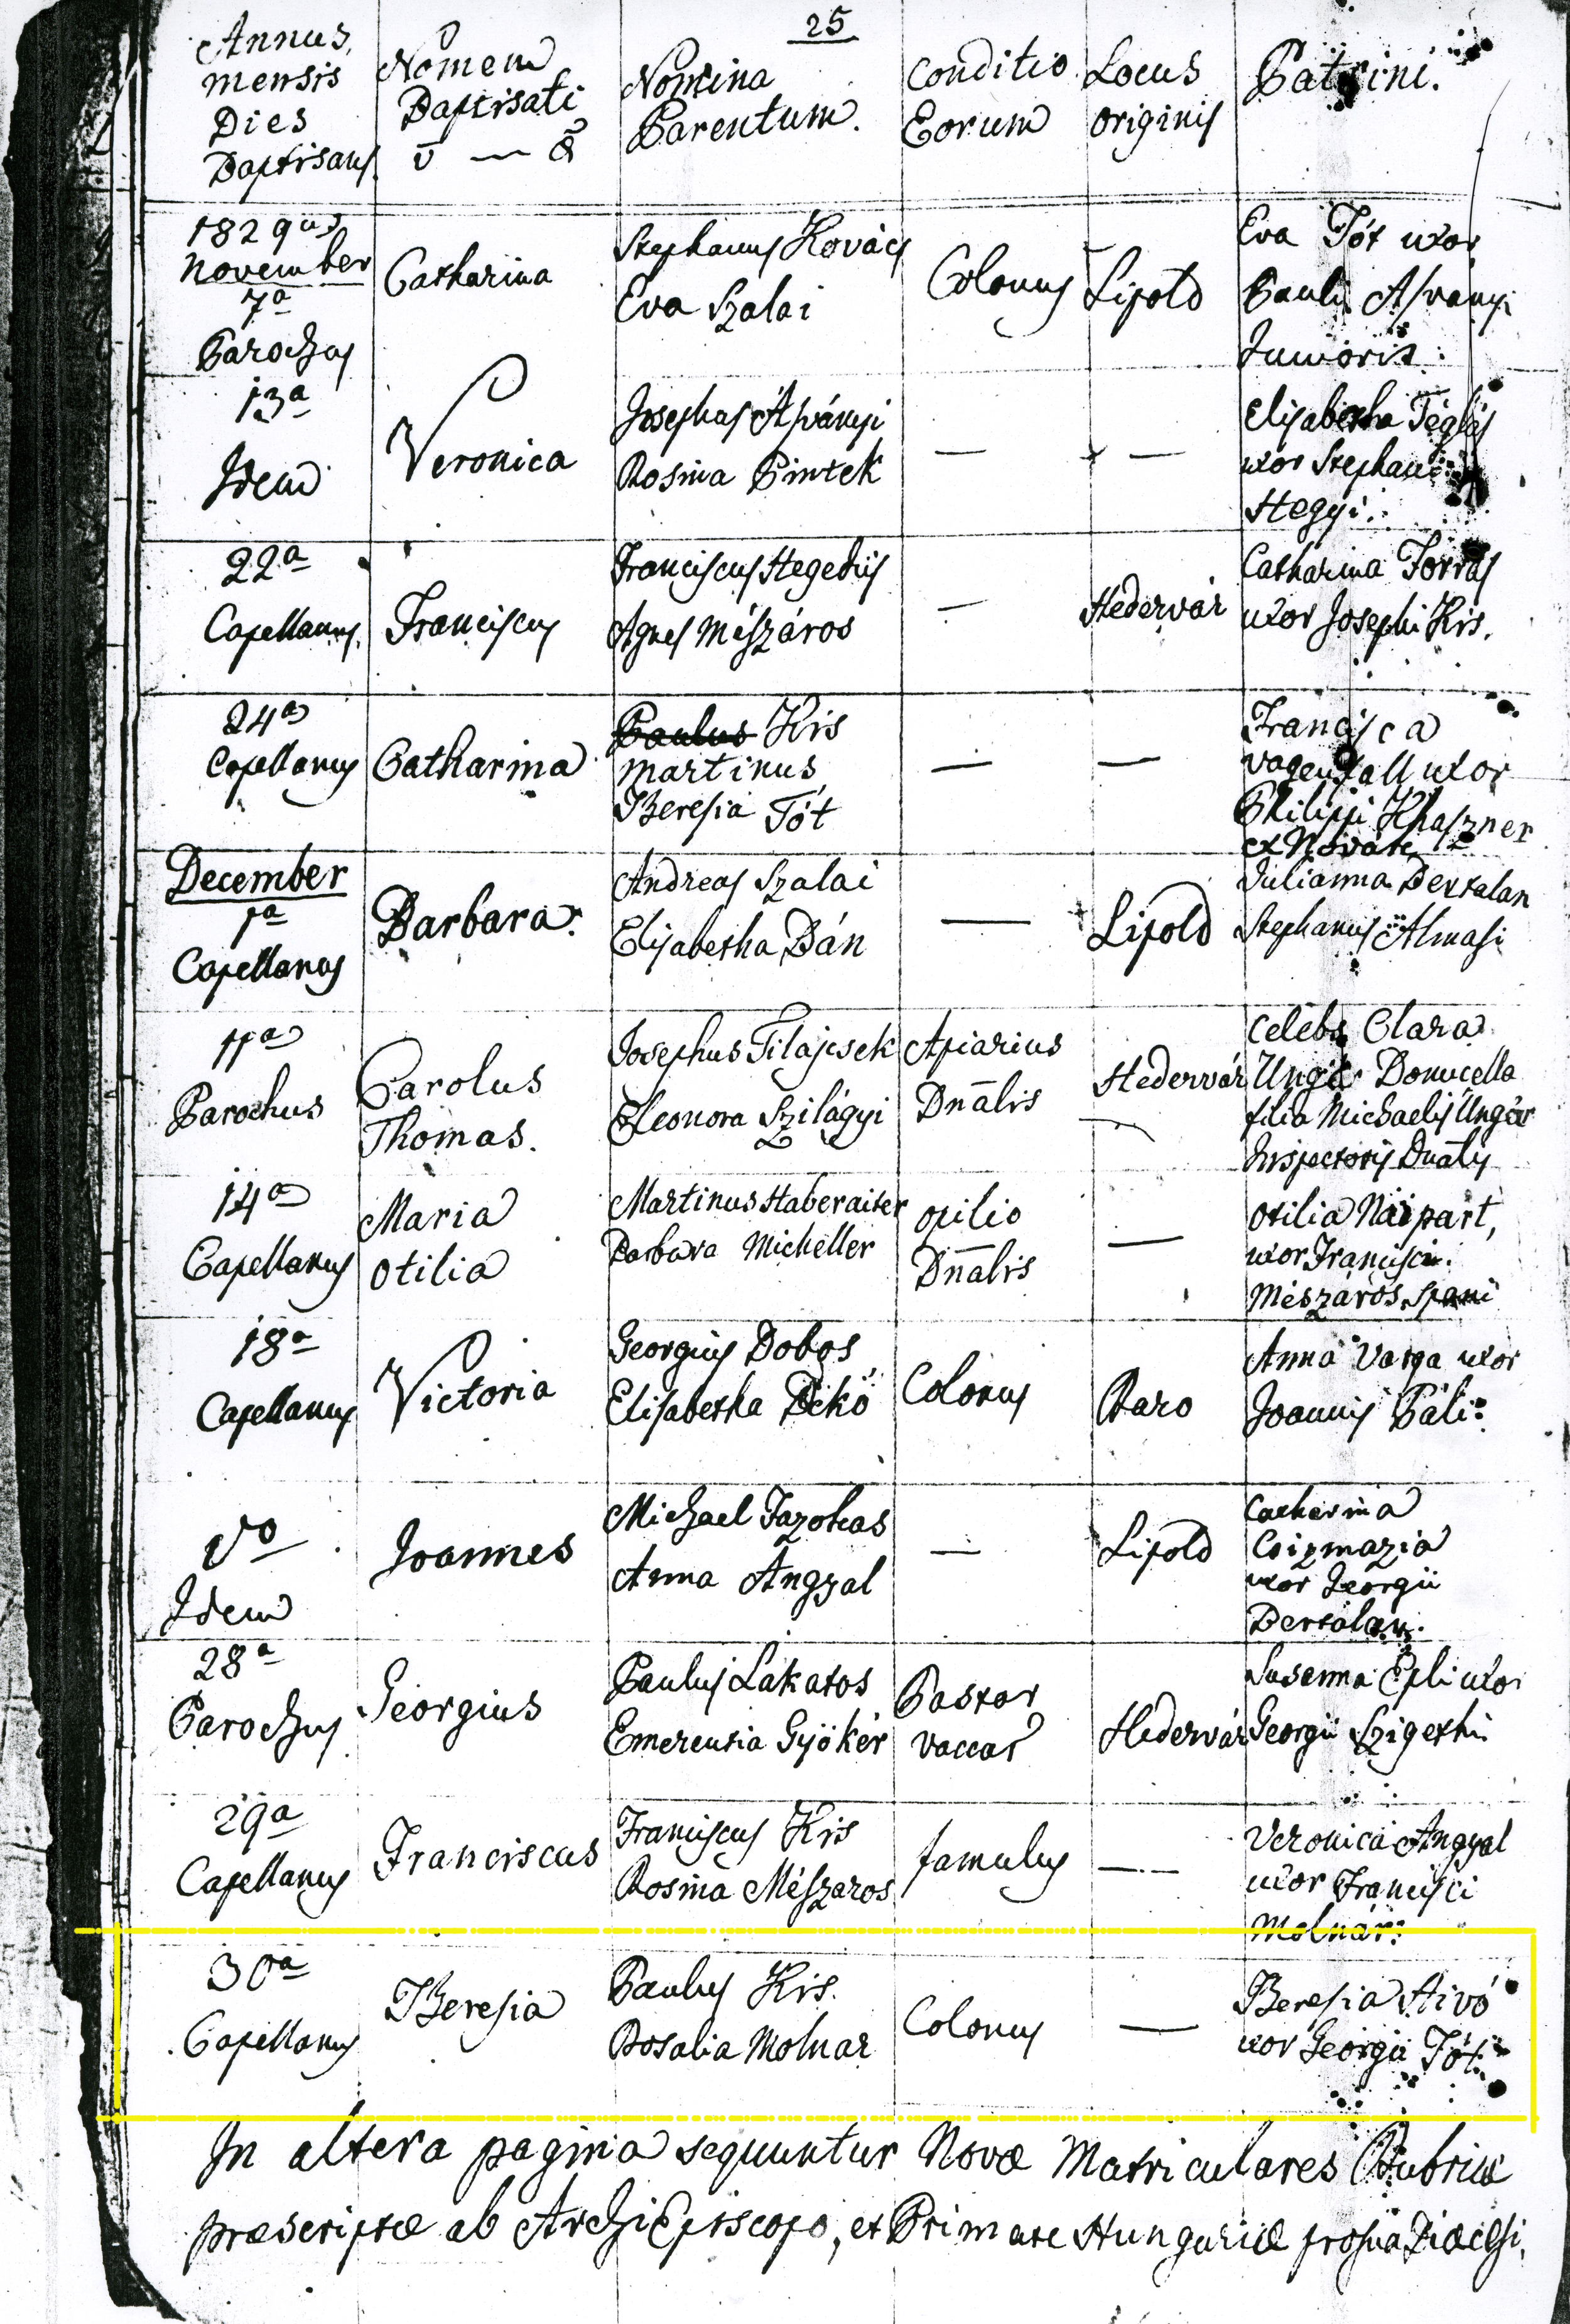 25
Annus, mensis Dies Baptisans.
Nomen Baptisati
Nomina Parentum.
Conditio Eorum
Locus originis
Patrini.
1829
November
7a
Parochus
Catharina
Stephanus Kovács
Eva Szalai
Colonus
Lipold
Eva Tót uxor
Pauli Asványi
Junioris.
13a
Idem
Veronica
Josephus Asványi
Rosina Pintek
—
—
Elisabetha Téglás
uxor Stephani
Hegyi.
22a
Capellanus.
Franciscus
Franciscus Hegedüs
Agnes Mészáros
—
Hedervár
Catharina Forrás
uxor Josephi Kis.
24a
Capellanus
Catharina
Paulus Kis
Martinus
Theresia Tót
—
—
Francisca
uxor
Philippi
ex Novák
December
1a
Capellanus
Barbara.
Andreas Szalai
Elisabetha Bán
—
Lipold
Julianna Bertalan
Stephanus Almasi
11a
Parochus
Carolus
Thomas.
Josephus Filajcsek
Eleonora Szilágyi
Apiarius
Dnālis
Hedervár
—
Celebs Clara
Ungár Domicella
filia Michaelis Ungár
Inspectoris Dnālis
14a
Capellanus
Maria
Otilia
Martinus Haberaiter
Barbara Micheller
opilio
Dnālis
—
Otilia Naipart,
uxor Francisci
Mészáros Spani
18a
Capellanus
Victoria
Georgius Dobos
Elisabetha Bekö
Colonus
Raro
Anna Varga uxor
Joannis Páli.
Idem
Joannes
Michael Fazokas
Anna Angyal
—
Lipold
Catherina
Csizmazia
uxor Georgii
Bertalan.
28a
Parochus
Georgius
Paulus Lakatos
Emerentia Gyökér
Pastor
vaccar
Hedervár
Susanna Epli uxor
Georgii Szigethi
29a
Capellanus
Franciscus
Franciscus Kis
Rosina Mészaros
famulus
—
Veronica Angyal
uxor Francisci
Molnár.
30a
Capellanus
Theresia
Paulus Kis.
Rosalia Molnar
Colonus
—
Theresia Hivó
uxor Georgii Tót.
In altera pagina sequuntur Novæ Matriculares Rubricæ
præscriptæ ab ArchiEpiscopo, et Primate Hungariæ pro sua Diæcesi.